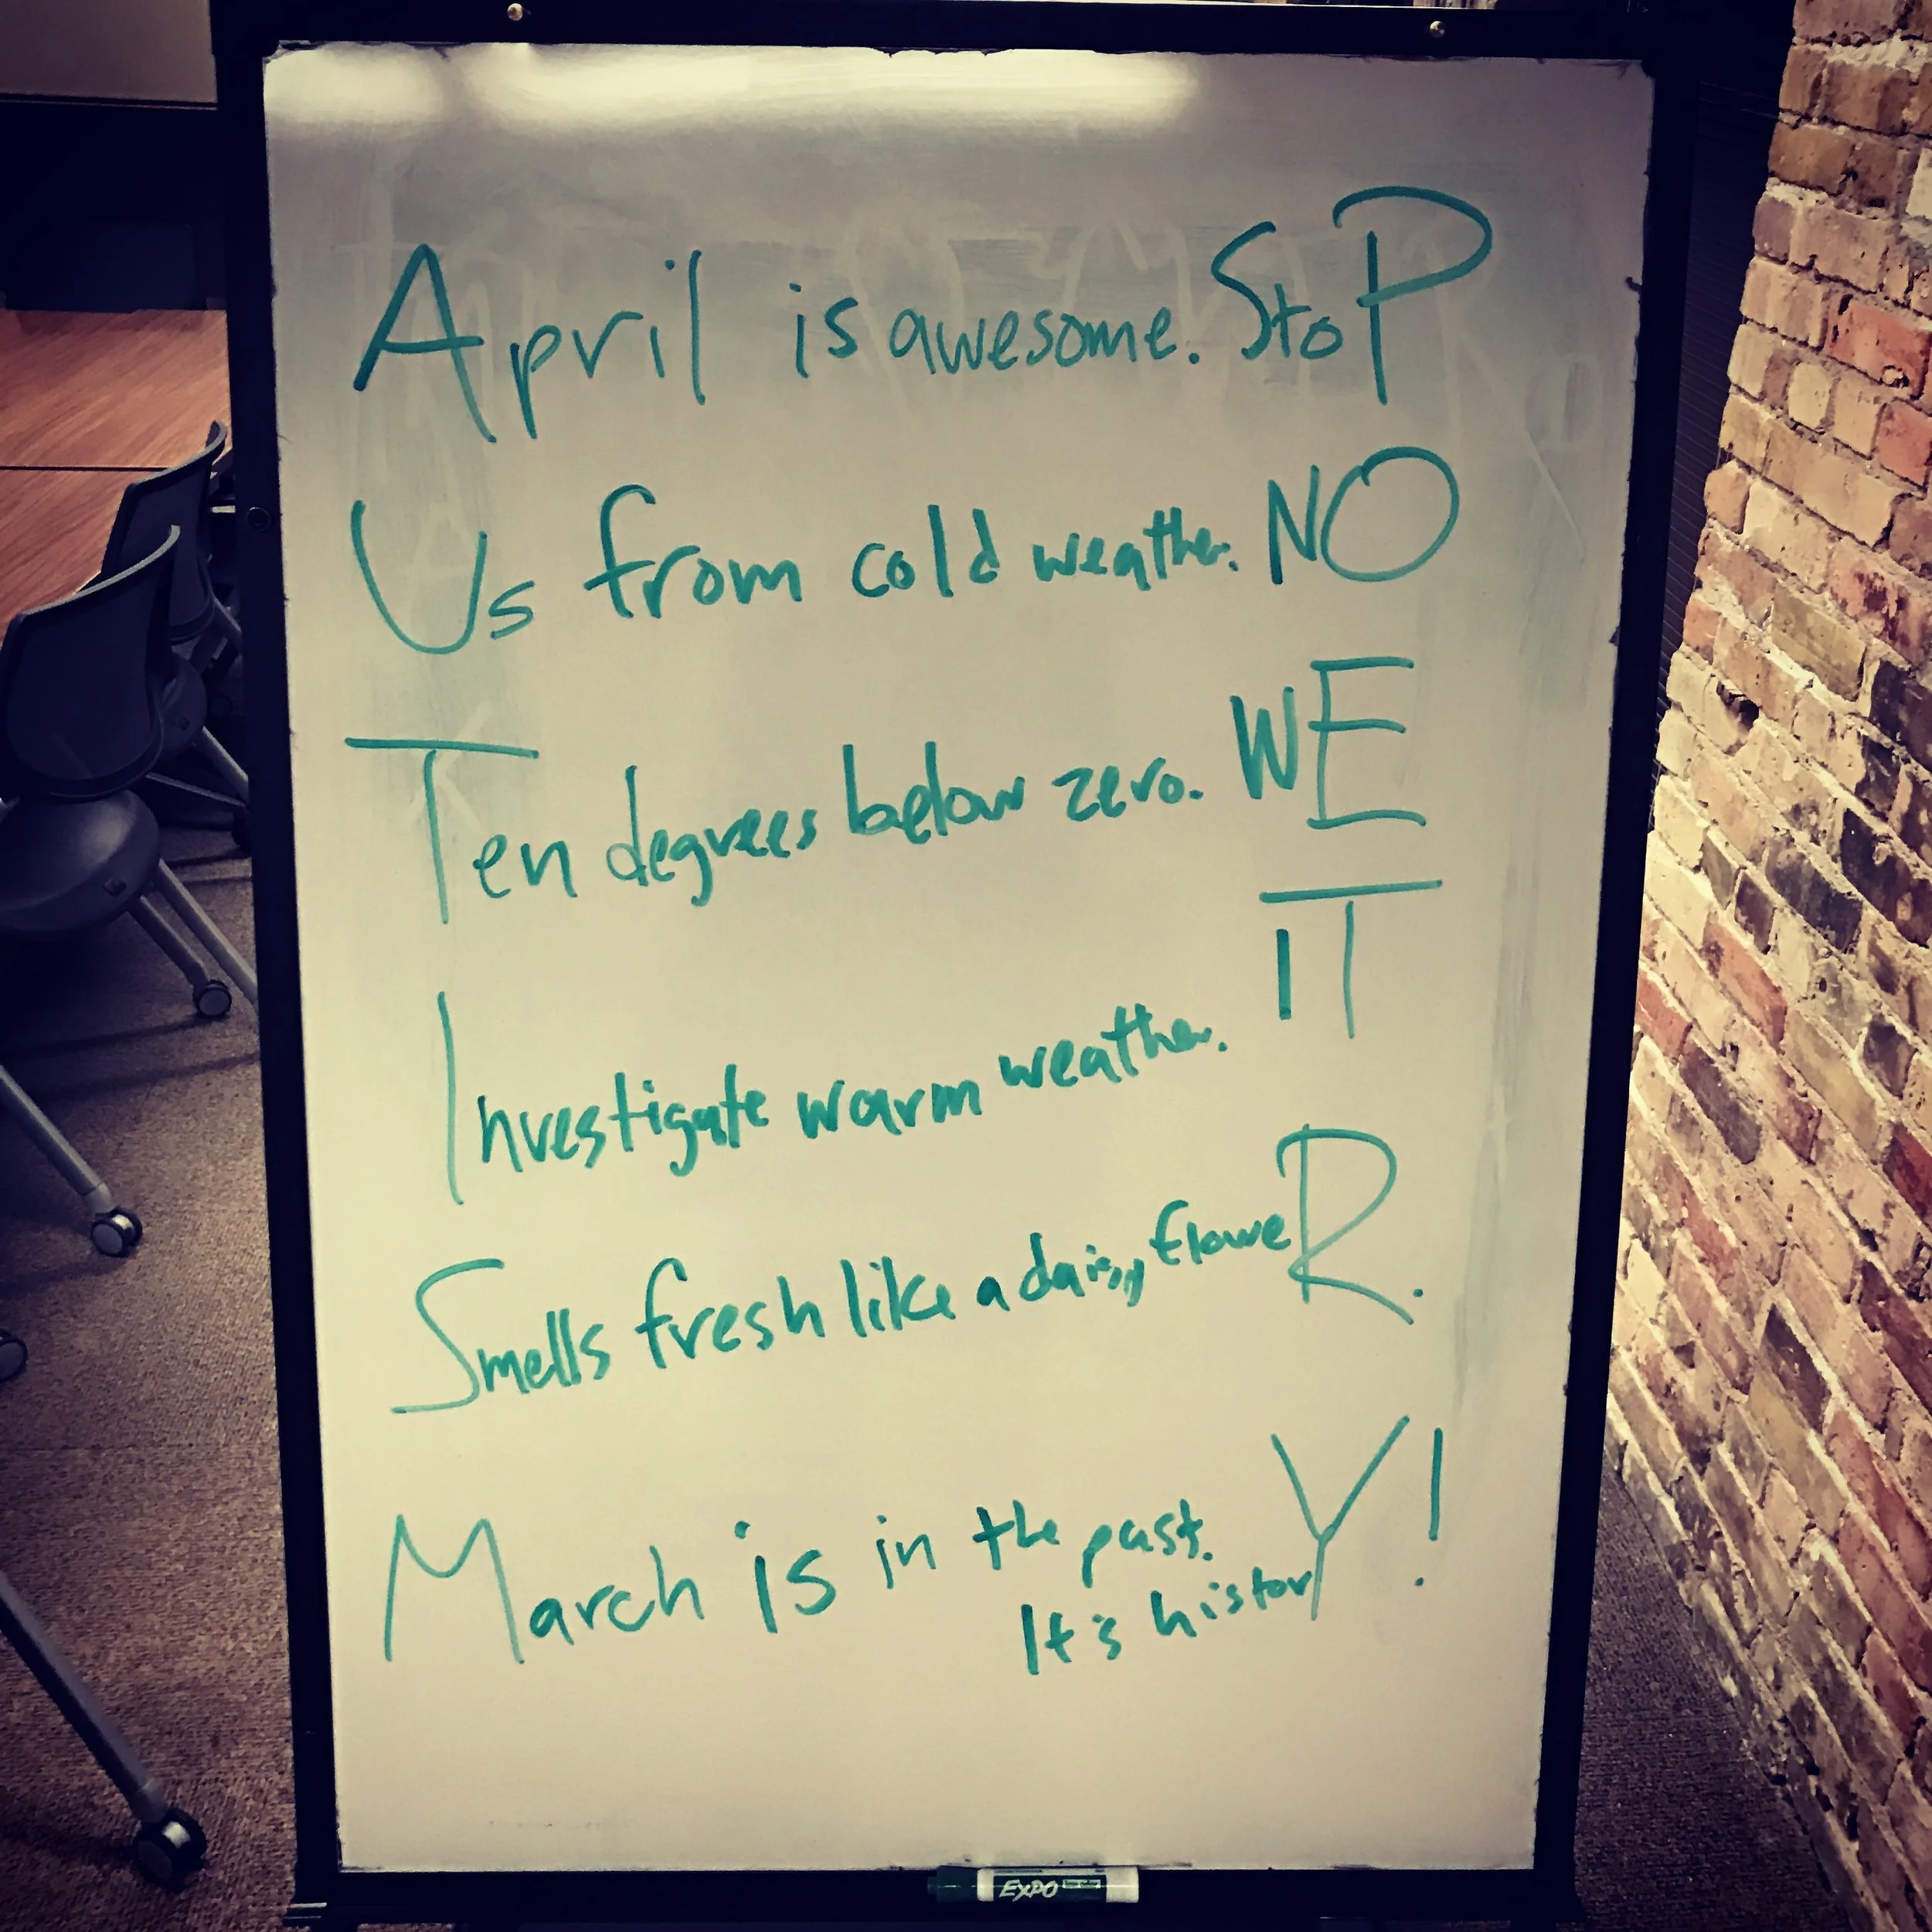 April is awesome. StoP
Us from cold weather. NO
Ten degrees below zero. WE
Investigate warm weather. IT
Smells fresh like a daisy floweR.
March is in the past.
It's historY!
EXPO